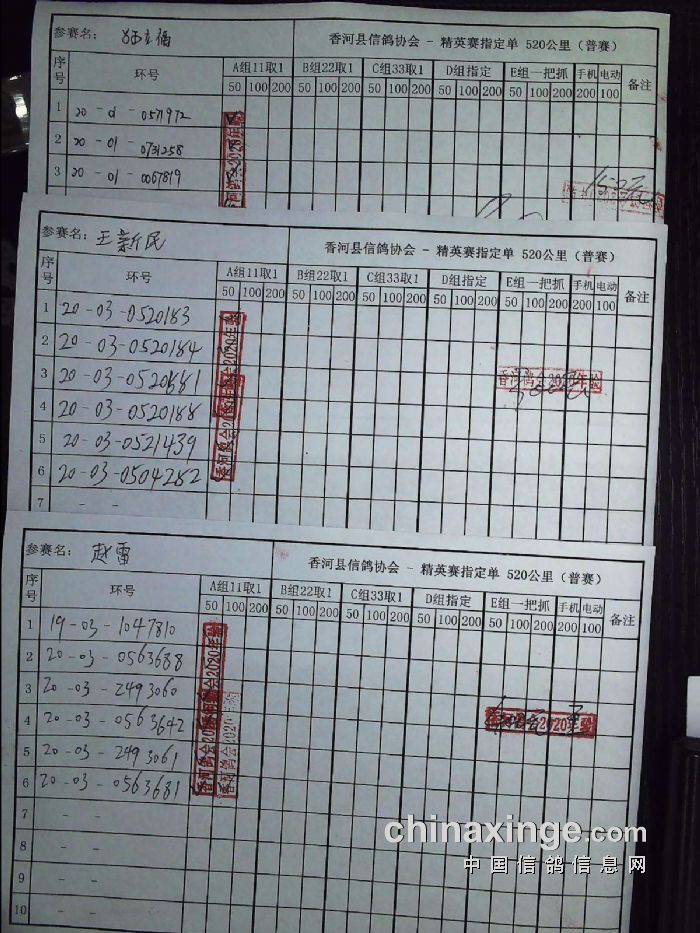 参赛名：
香河县信鸽协会 - 精英赛指定单 520公里（普赛）
序号 环号 A组11取1 B组22取1 C组33取1 D组指定 E组一把抓 手机 电动 备注
50 100 200 50 100 200 50 100 200 50 100 200 50 100 200 200 100
1 20-01-0571972
2 20-01-0731258
3 20-01-0067819
参赛名：王新民
香河县信鸽协会 - 精英赛指定单 520公里（普赛）
序号 环号 A组11取1 B组22取1 C组33取1 D组指定 E组一把抓 手机 电动 备注
50 100 200 50 100 200 50 100 200 50 100 200 50 100 200 200 100
1 20-03-0520183
2 20-03-0520184
3 20-03-0520881
4 20-03-0520188
5 20-03-0521439
6 20-03-0504282
7 - -
香河鸽会2020年验
香河鸽会2020年验
参赛名：赵雷
香河县信鸽协会 - 精英赛指定单 520公里（普赛）
序号 环号 A组11取1 B组22取1 C组33取1 D组指定 E组一把抓 手机 电动 备注
50 100 200 50 100 200 50 100 200 50 100 200 50 100 200 200 100
1 19-03-1047810
2 20-03-0563688
3 20-03-2493060
4 20-03-0563642
5 20-03-2493061
6 20-03-0563681
7 - -
8 - -
9 - -
10 - -
香河鸽会2020年验
香河鸽会2020
香河鸽会2020年验
chinaxinge.com
中国信鸽信息网